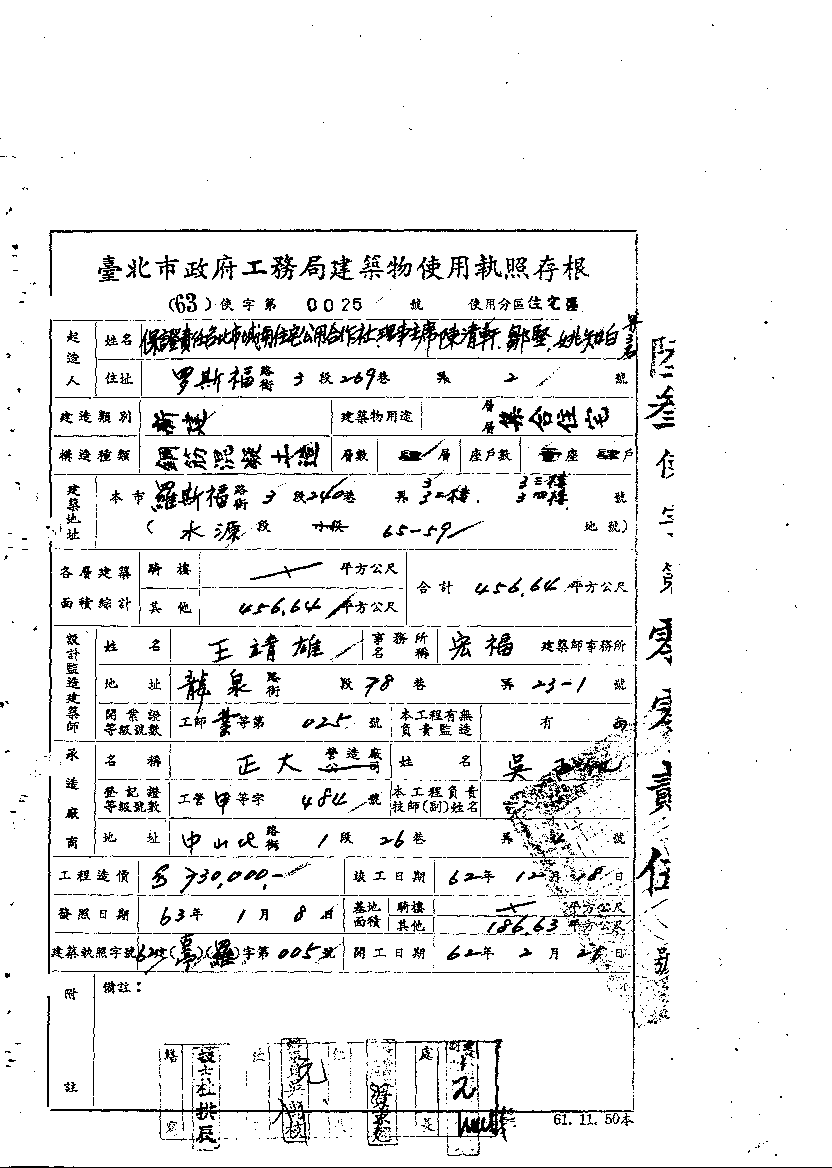 臺北市政府工務局建築物使用執照存根
(63) 使字第 0025 號 使用分區住宅區
起造人 姓名 保證責任台北市城南住宅公用合作社理事主席陳清軒、鄒堅、姚知白
住址 罗斯福路街 3 段 269 巷 弄 2 號
建造類別 新建 建築物用途 層層 集合住宅
構造種類 鋼筋混凝土造 層數 層 座戶數 座 戶
建築地址 本市 羅斯福路街 3 段 240 巷 弄 3 3二樓. 3三樓 3四樓 號
( 水源 段 小段 65-59 地號)
各層建築面積綜計 騎樓 平方公尺 合計 456.64 平方公尺
其他 456.64 平方公尺
設計監造建築師 姓名 王靖雄 事務所名稱 宏福 建築師事務所
地址 龍泉路街 段 78 巷 弄 23-1 號
開業證等級號數 工師 等第 025 號 本工程有無負責監造 有
承造廠商 名稱 正大 營造廠公司 姓名 吳
登記證等級號數 工營 甲 等字 484 號 本工程負責技師(副)姓名
地址 中山北路街 1 段 26 巷 弄 號
工程造價 730,000.- 竣工日期 62年 12月 28日
發照日期 63年 1月 8日 基地面積 騎樓 平方公尺
其他 186.63 平方公尺
建築執照字號 62建( )(羅)字第 005 號 開工日期 62年 2月 日
附註 備註：
處長
61.11.50本
陸叁使字第零零貳伍號